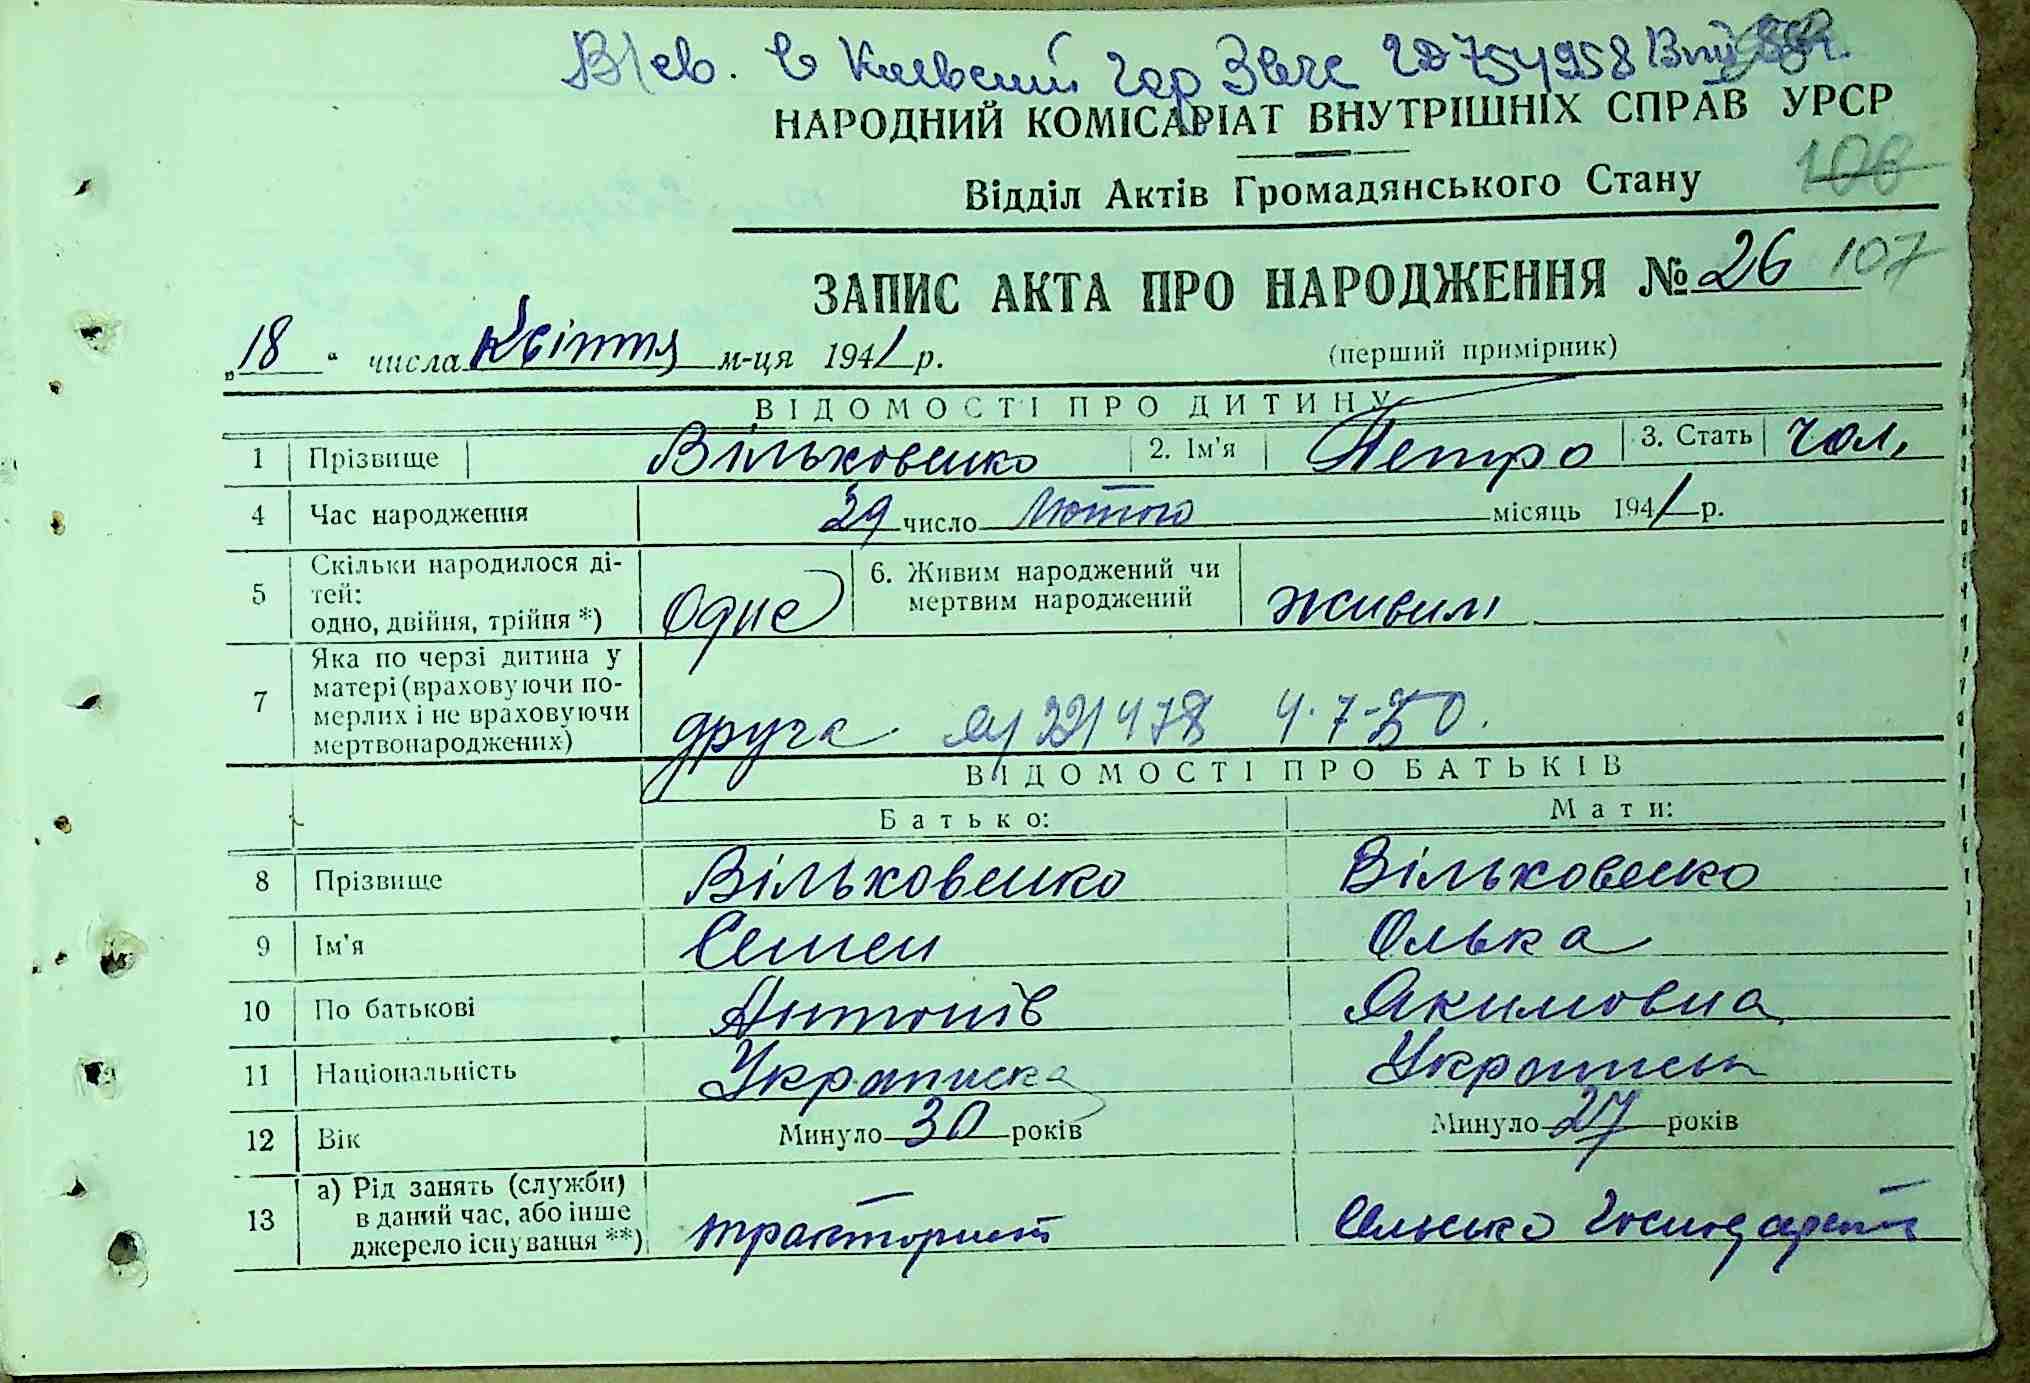 В/св. в Киевский гор Загс 754958
НАРОДНИЙ КОМІСАРІАТ ВНУТРІШНІХ СПРАВ УРСР
Відділ Актів Громадянського Стану 106
ЗАПИС АКТА ПРО НАРОДЖЕННЯ № 26 107
„18“ числа Квітня м-ця 1941 р. (перший примірник)
ВІДОМОСТІ ПРО ДИТИНУ
1 Прізвище Вільховенко 2. Ім'я Петро 3. Стать Чол.
4 Час народження 29 число Лютого місяць 1941 р.
5 Скільки народилося ді-
тей:
одно, двійня, трійня *) Одне 6. Живим народжений чи
мертвим народжений живим
7 Яка по черзі дитина у
матері (враховуючи по-
мерлих і не враховуючи
мертвонароджених) друга 4.7-50.
ВІДОМОСТІ ПРО БАТЬКІВ
Батько: Мати:
8 Прізвище Вільховенко Вільховенко
9 Ім'я Семен Олька
10 По батькові Антонів Якимовна
11 Національність
12 Вік Минуло 30 років Минуло 27 років
13 а) Рід занять (служби)
в даний час, або інше
джерело існування **) тракторист Сельсько